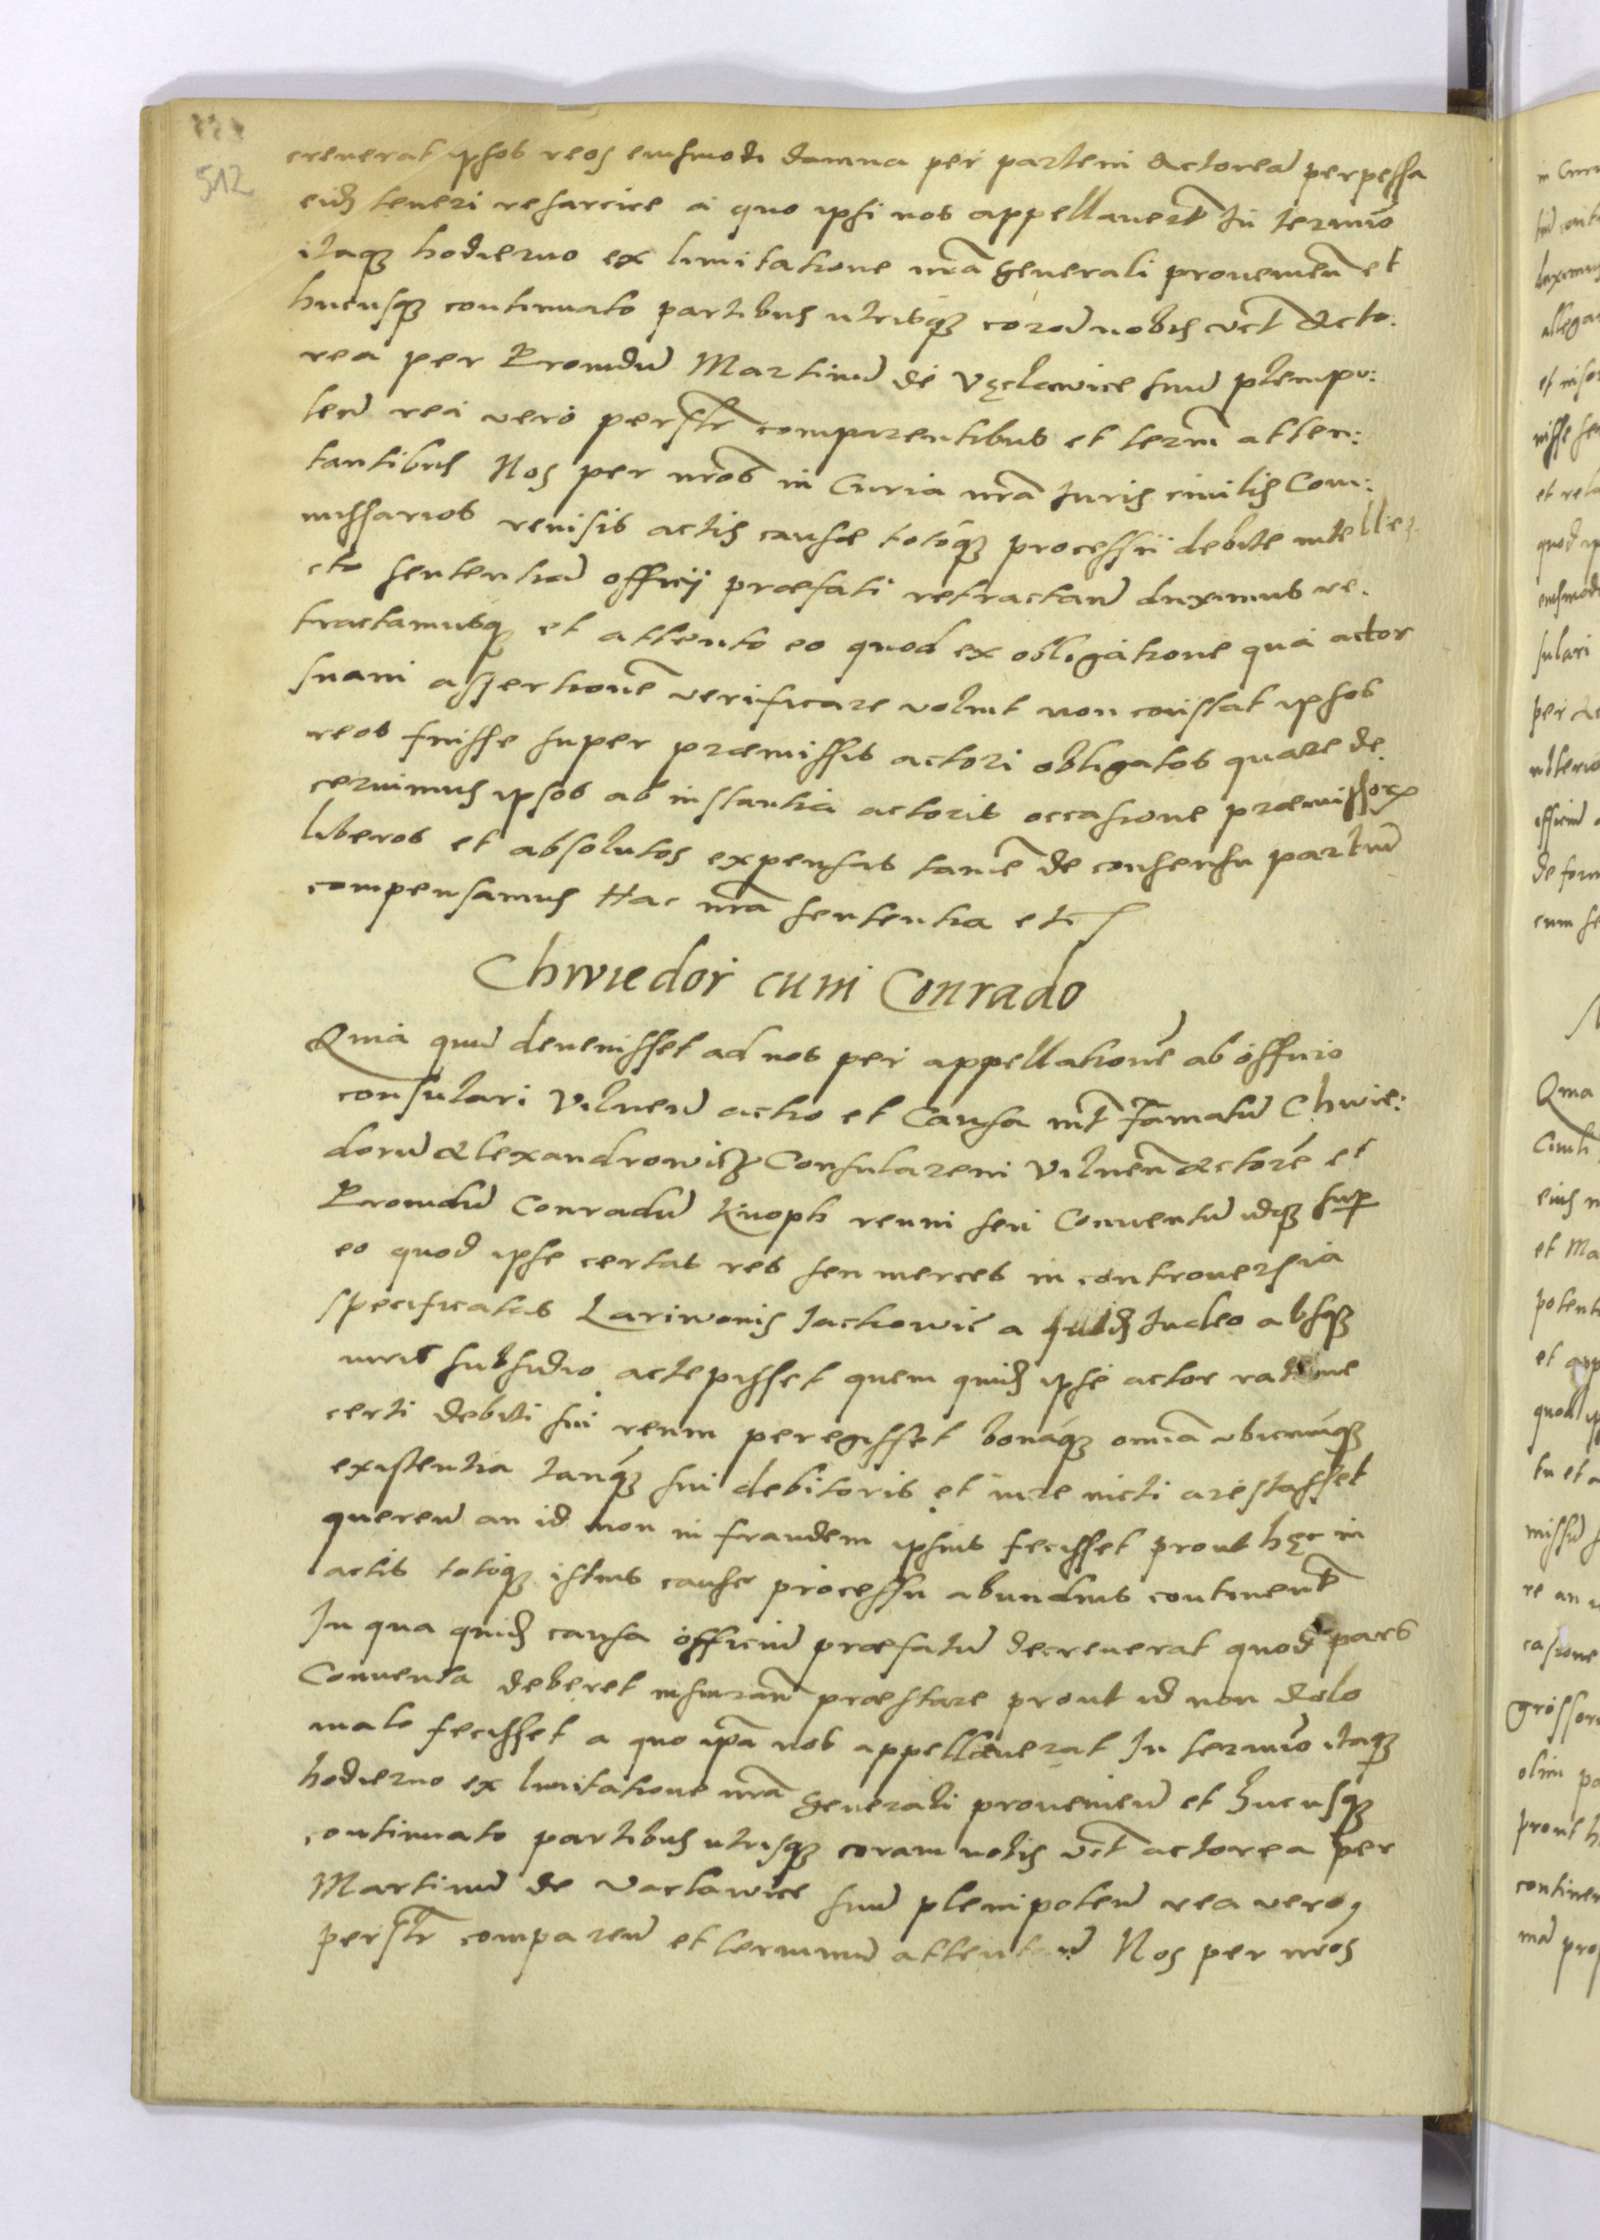 512
creverat ipsos reos eiusmodi damna per partem Actoreā perpessa
eidē teneri resarcire a quo ipsi nos appellaverūt In termīo
itaq; hodierno ex limitatione nr̄a generali provenień et
hucusq; continuato partibus utrisq; corā nobis vt̄ Acto:
rea per Providū Martinū de Vęclawice suū plenipo:
teń rea vero persl̄r comparentibus et term̄ atten:
tantibus Nos per nr̄os in Curia nr̄a Iuris civilis Com:
missarios revisis actis causæ totoq; processu debite intelle:
cto sententiā officii præfati retractań duximus re.
tractamusq; et attento eo quod ex obligatione qua actor
suam assertionē verificare voluit non constat ipsos
reos fuisse super præmissis actori obligatos quare de.
cernimus ipsos ab instantia actoris occasione præmissorꝝ
liberos et absolutos expensas tamē de consensu partiū
compensamus Hac nr̄a sententia etc̄
Chwiedor cum Conrado
Quia quū devenisset ad nos per appellationē ab officio
consulari Vilneń actio et Causa int̄ Famatū Chwie:
dorū Alexandrowicz Consularem Vilneń Actorē et
Providū Conradū Knoph reum seu Conventū idq; sup̄
eo quod ipse certas res seu merces in controversia
specificatas Lariwonis Jackowic a Iudeo absq;
iuris subsidio accepisset quem quidē ipse actor ratione
certi debiti sui reum peregisset bonaq; omīa ubicūq;
existentia tanq; sui debitoris et iure victi arestasset
quereń an id non in fraudem ipsius fecisset prout hęc in
actis totoq; istius causæ processu abundius continent̄
In qua quidē causa officiū præfatū decreverat quod pars
Conventa deberet iusiurań præstare prout id non dolo
malo fecisset a quo ip̄a nos appellaverat In termīo itaq;
hodierno ex limitatione nr̄a generali provenień et hucusq;
continuato partibus utrisq; coram nobis vt̄ actorea per
Martinū de Vaclawice suū plenipoteń rea vero
persl̄r compareń et terminū attentań Nos per nr̄os